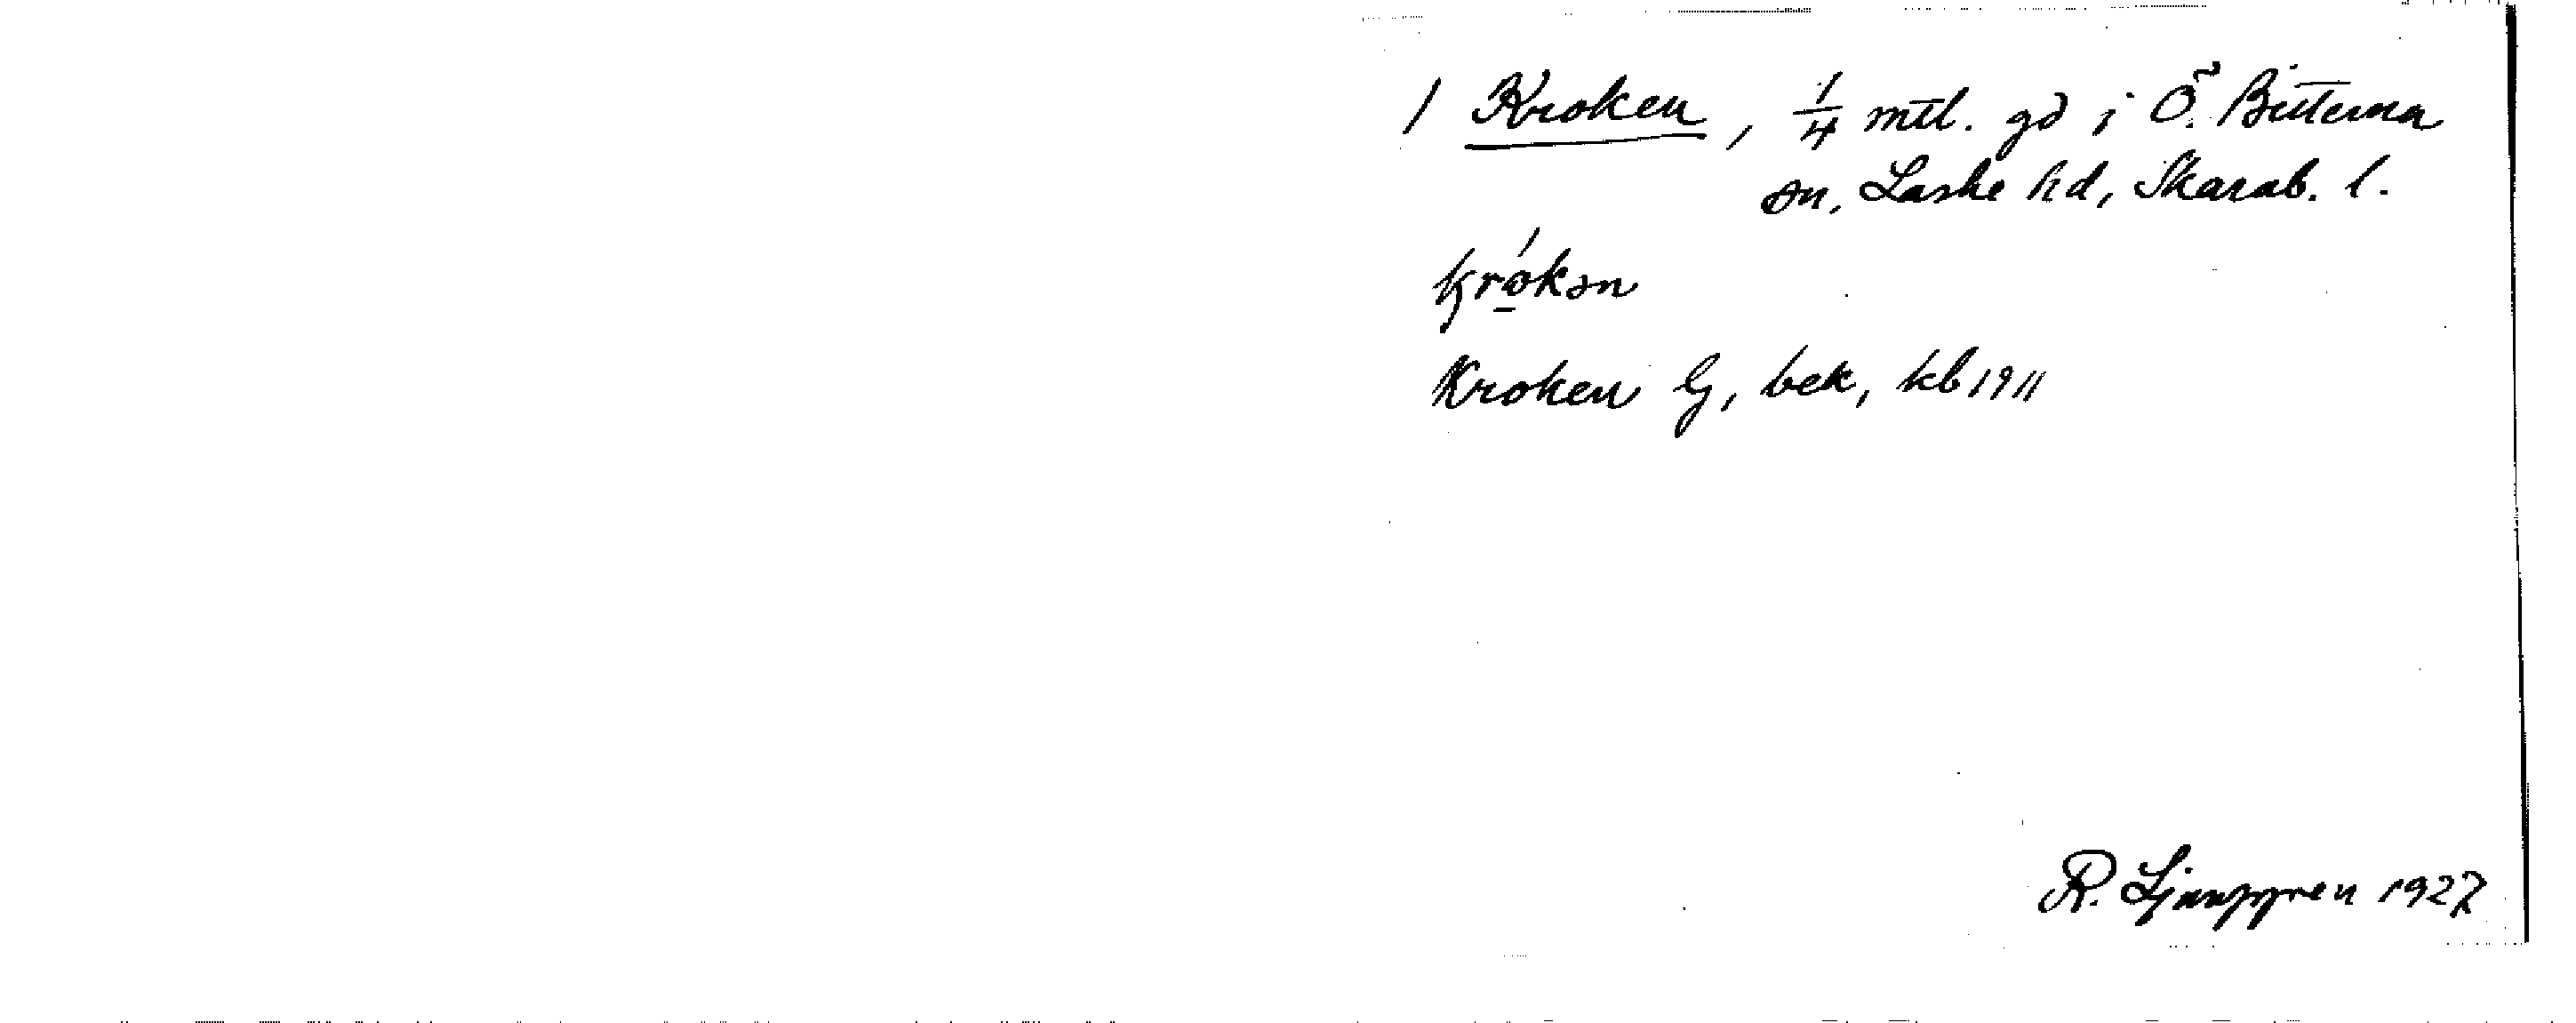 1 Kroken, 1/4 mtl. gd i Ö. Bitterna
sn, Laske hd, Skarab. l.
krókən
Kroken Lj, bek, kb 1911
R. Ljunggren 1927